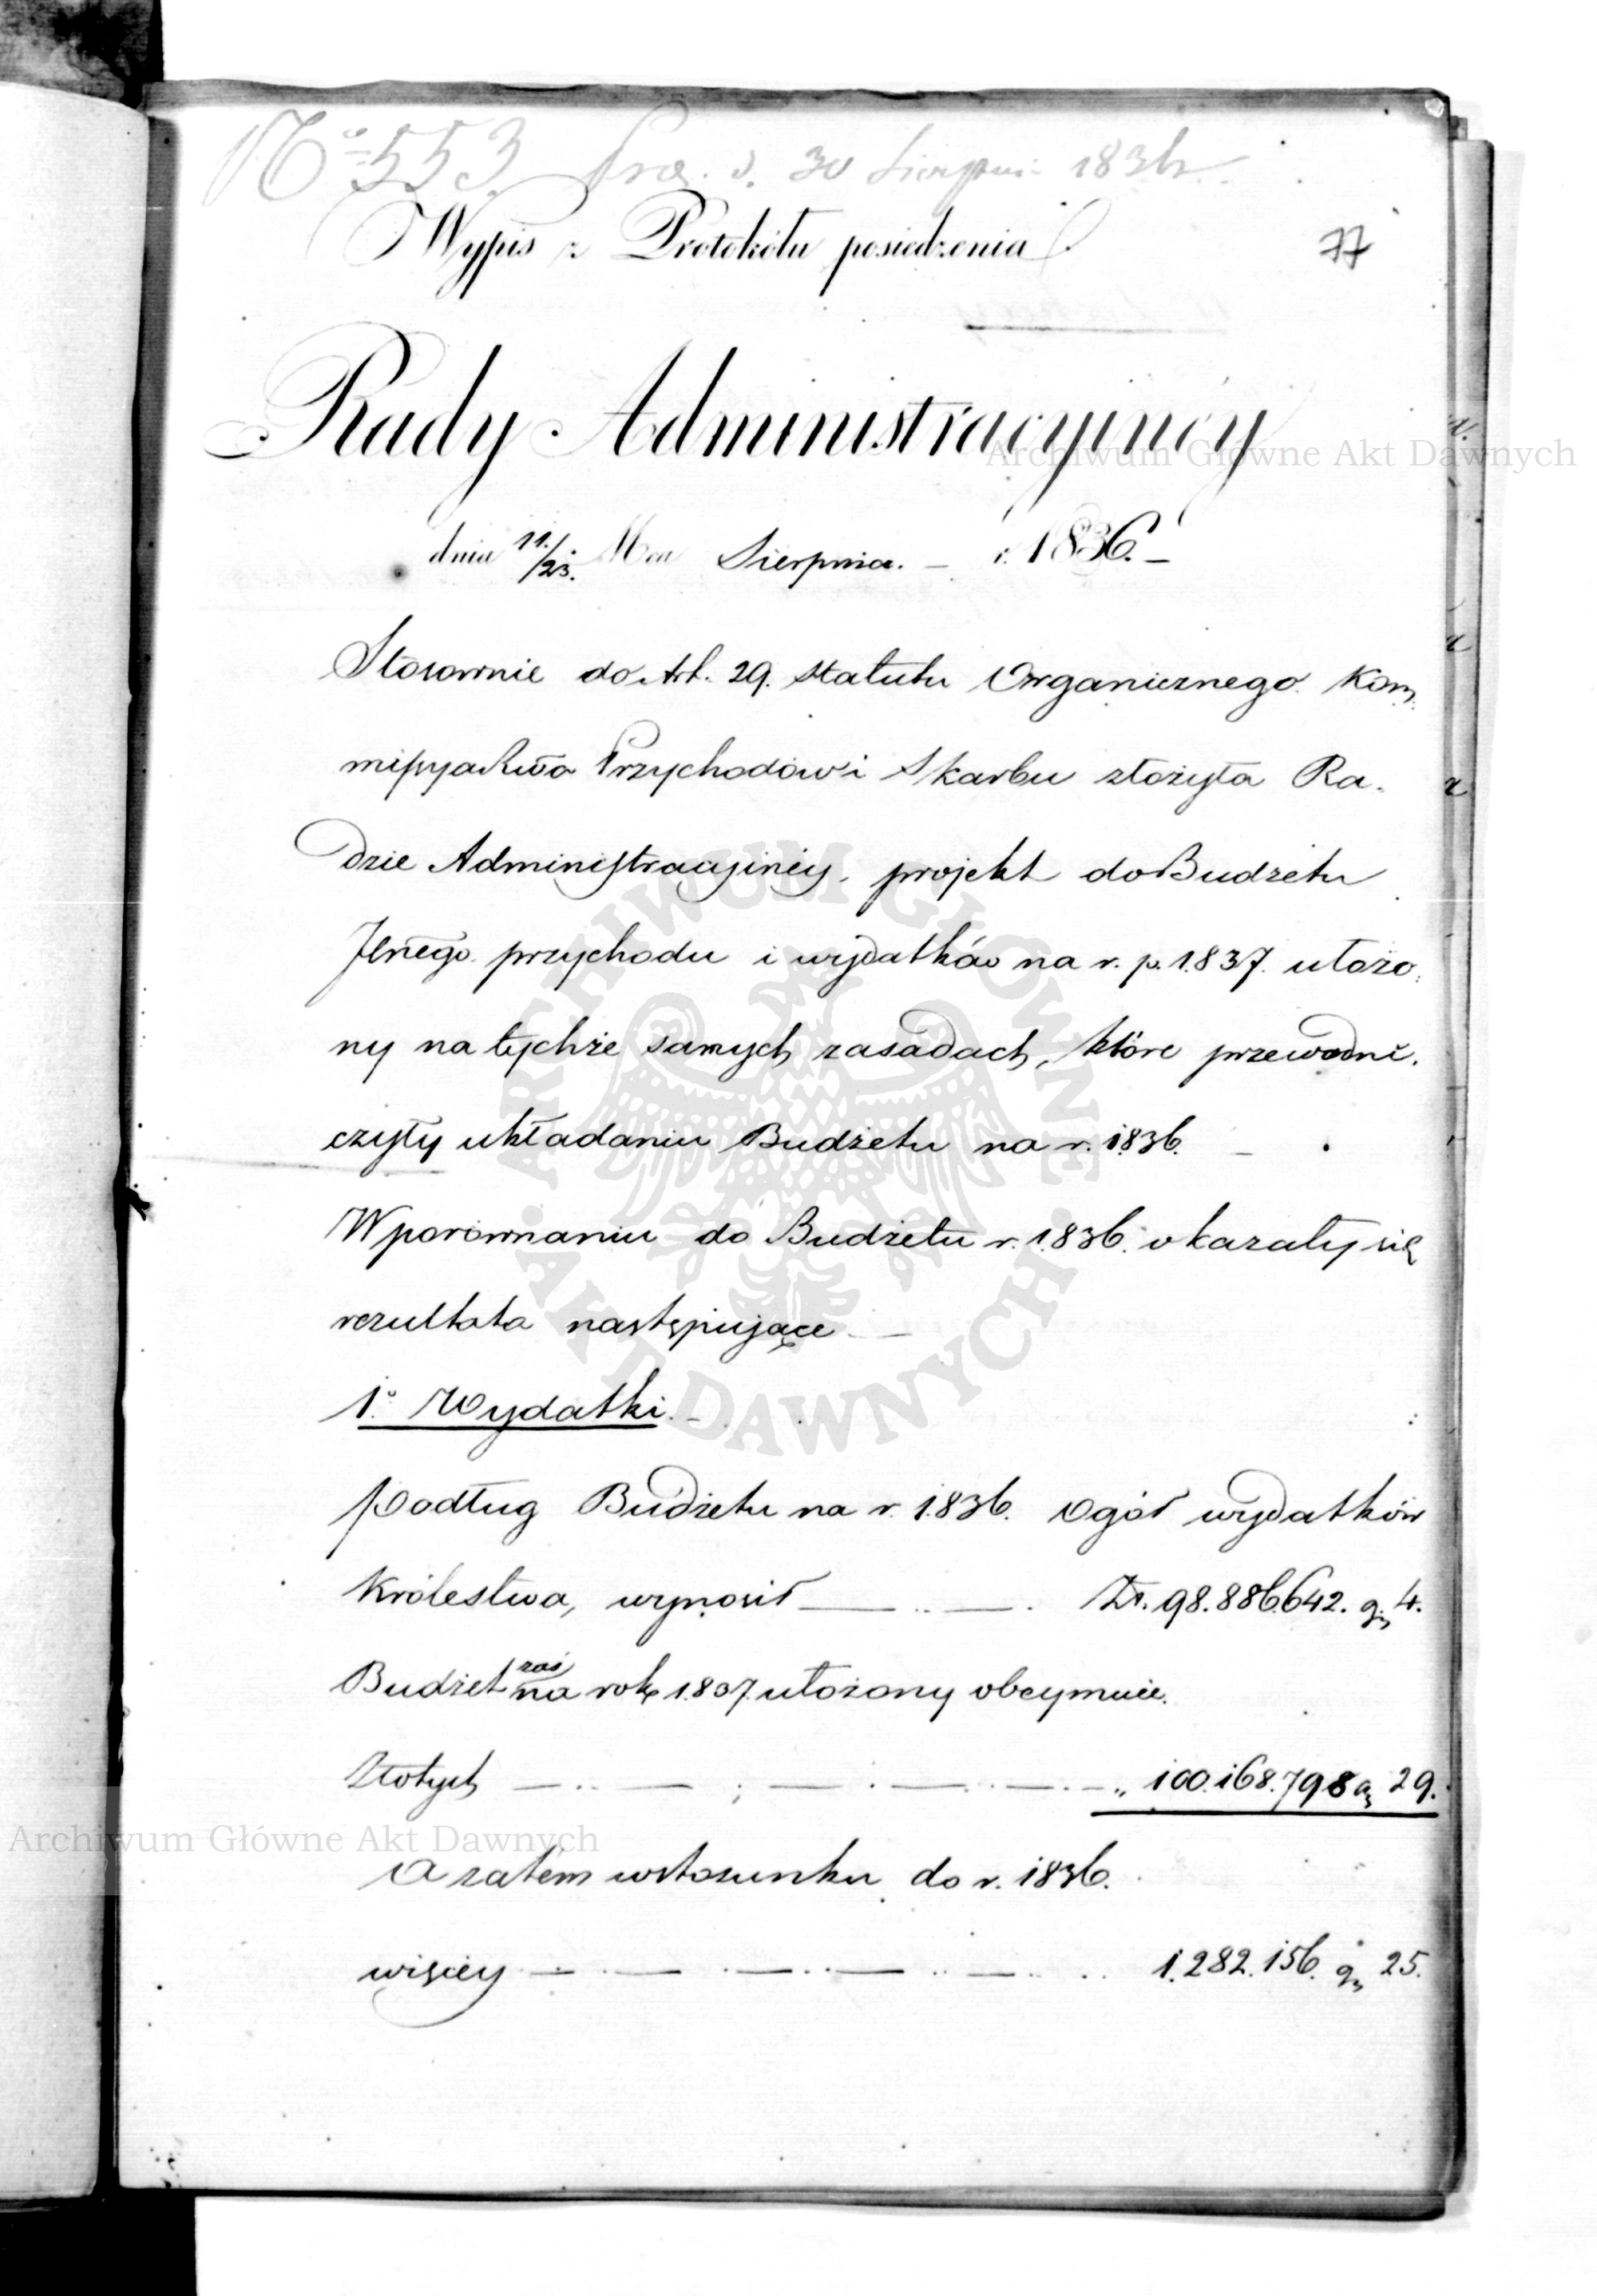 No 553. Pra. d. 30 Sierpnia 1836r.
Wypis z Protokółu posiedzenia
77
Rady Administracyinéy
dnia 11./23. Mca Sierpnia. – r. 1836. –
Stosownie do Art. 29. Statutu Organicznego Kom
missya Rwa Przychodów i Skarbu złożyła Ra-
dzie Administracyinéy projekt do Budżetu
Jlnego przychodu i wydatków na r. p. 1837. ułożo-
ny na tychże samych zasadach, które przewodni-
czyły układaniu Budżetu na r. 1836. –
W porównaniu do Budżetu r. 1836. okazały się
rezultata następujące –
1.° Wydatki. –
Podług Budżetu na r. 1836. Ogół wydatków
Królestwa, wynosił — .. — . Zł. 98.886.642. g. 4.
Budżet zaś na rok 1.837. ułożony obeymuie.
Złotych — .. — ; — . — .. — . – „ 100.168.798 g. 29.
A zatém w stosunku do r. 1836.
więcéy — . — . — .. — .. — .. .. 1.282.156. g. 25.
Archiwum Główne Akt Dawnych
ARCHIWUM GŁÓWNE · AKT DAWNYCH ·
Archiwum Główne Akt Dawnych